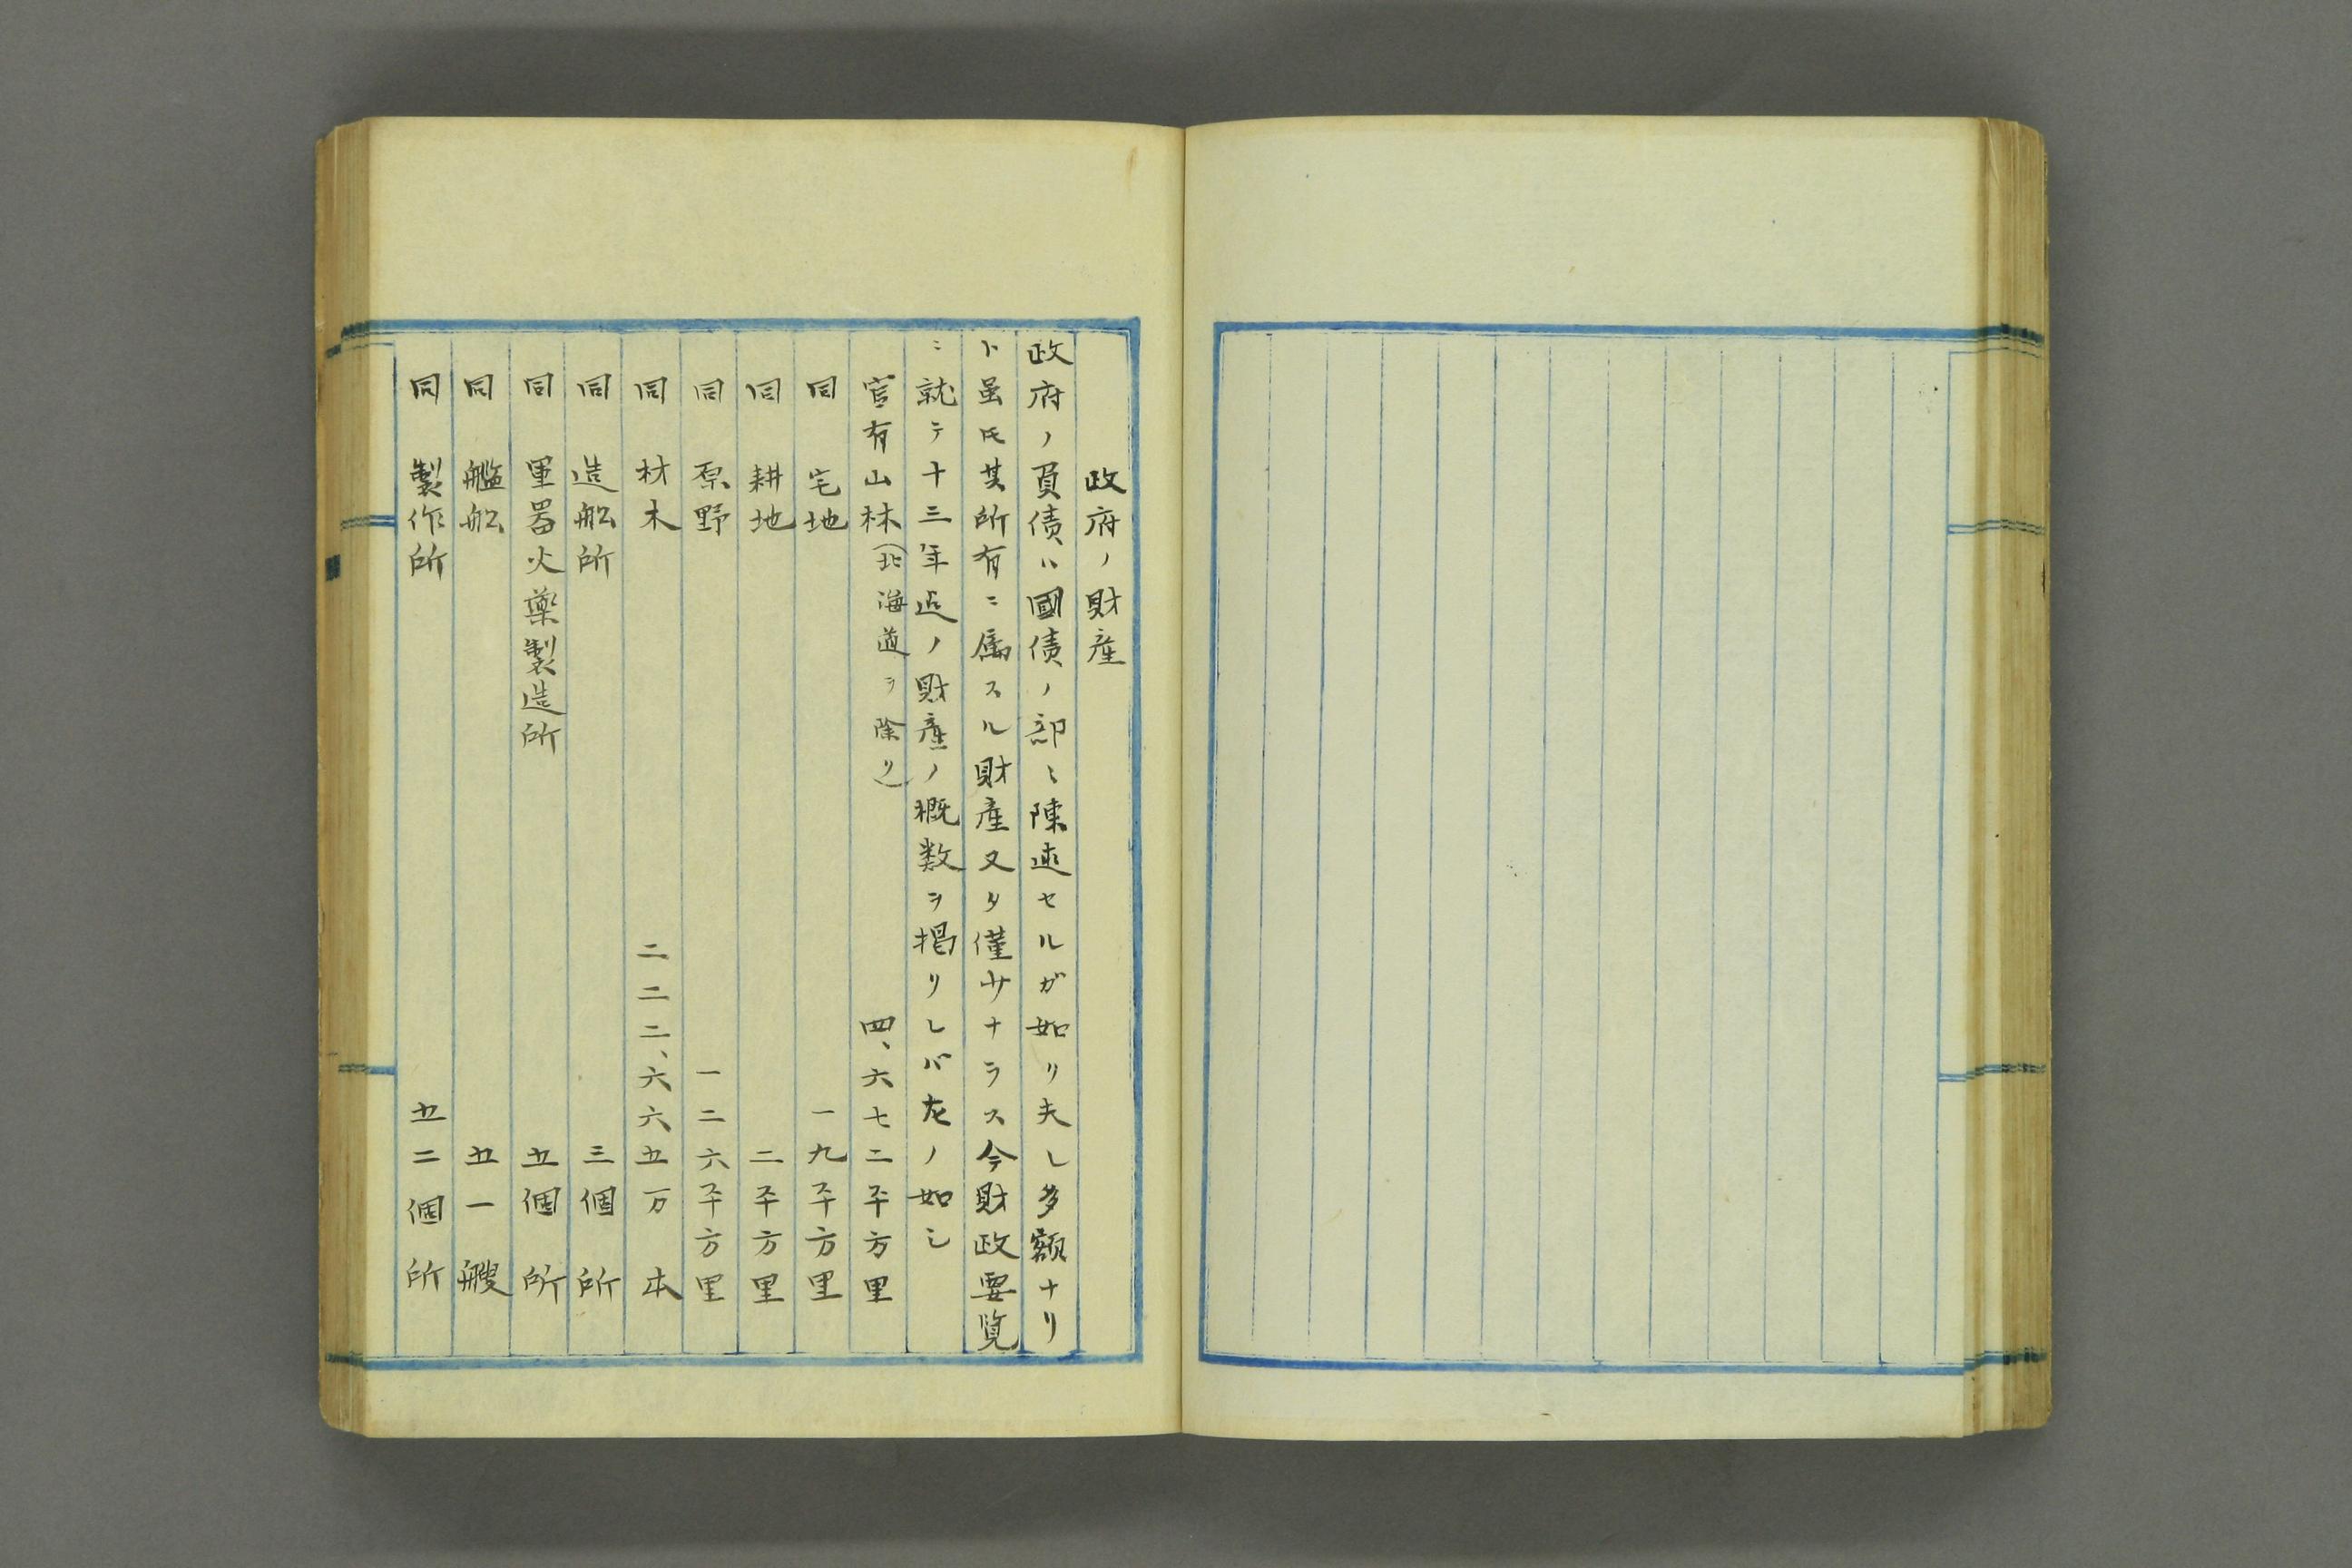 政府ノ財産
政府ノ負債ハ國債ノ部ニ陳述セルガ如リ夫レ多額ナリ
ト虽𪜈其所有ニ属スル財産又タ僅少ナラス今財政要覧
ニ就テ十三年迠ノ財産ノ概数ヲ掲リレバ左ノ如シ
官有山林(北海道ヲ除リ) 四、六七二平方里
同 宅地 一九平方里
同 耕地 二平方里
同 原野 一二六平方里
同 材木 二二二、六六五万本
同 造船所 三個所
同 軍器火薬製造所 五個所
同 艦船 五一艘
同 製作所 五二個所